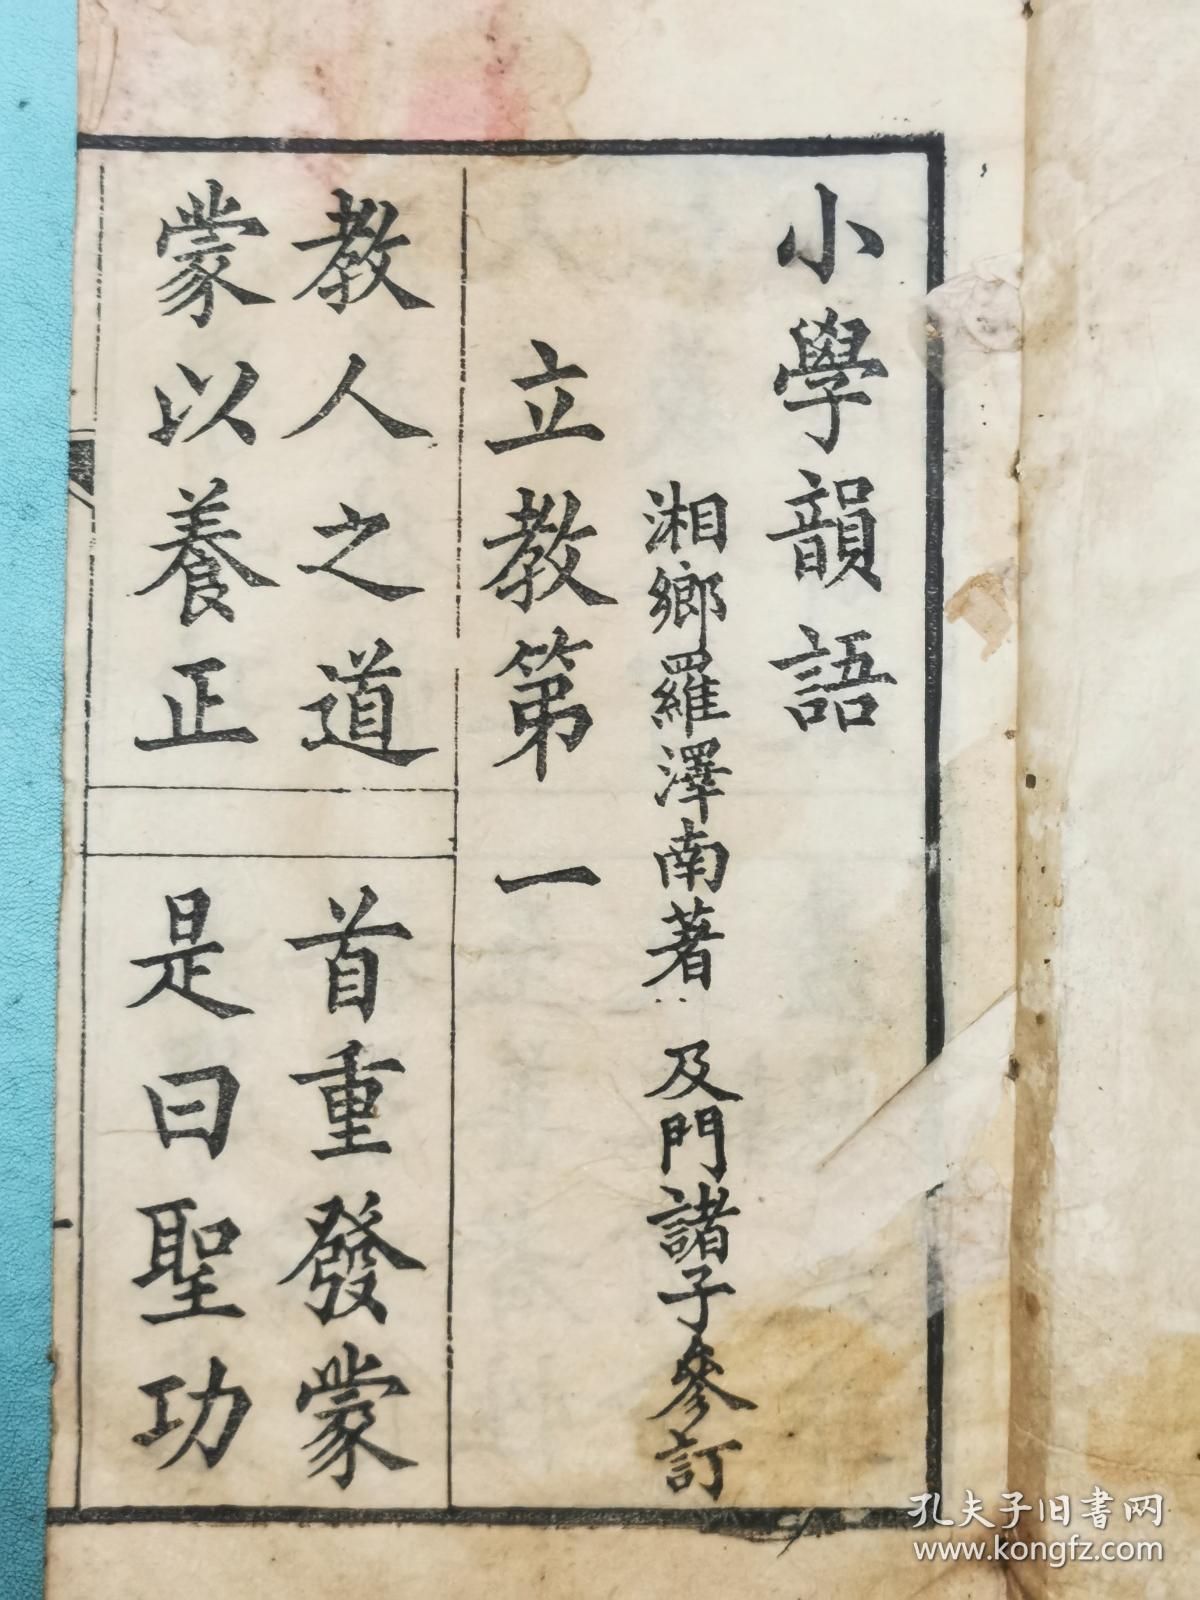 小學韻語
湘鄉羅澤南著 及門諸子參訂
立教第一
教人之道 首重發蒙
蒙以養正 是曰聖功
孔夫子旧書网
www.kongfz.com